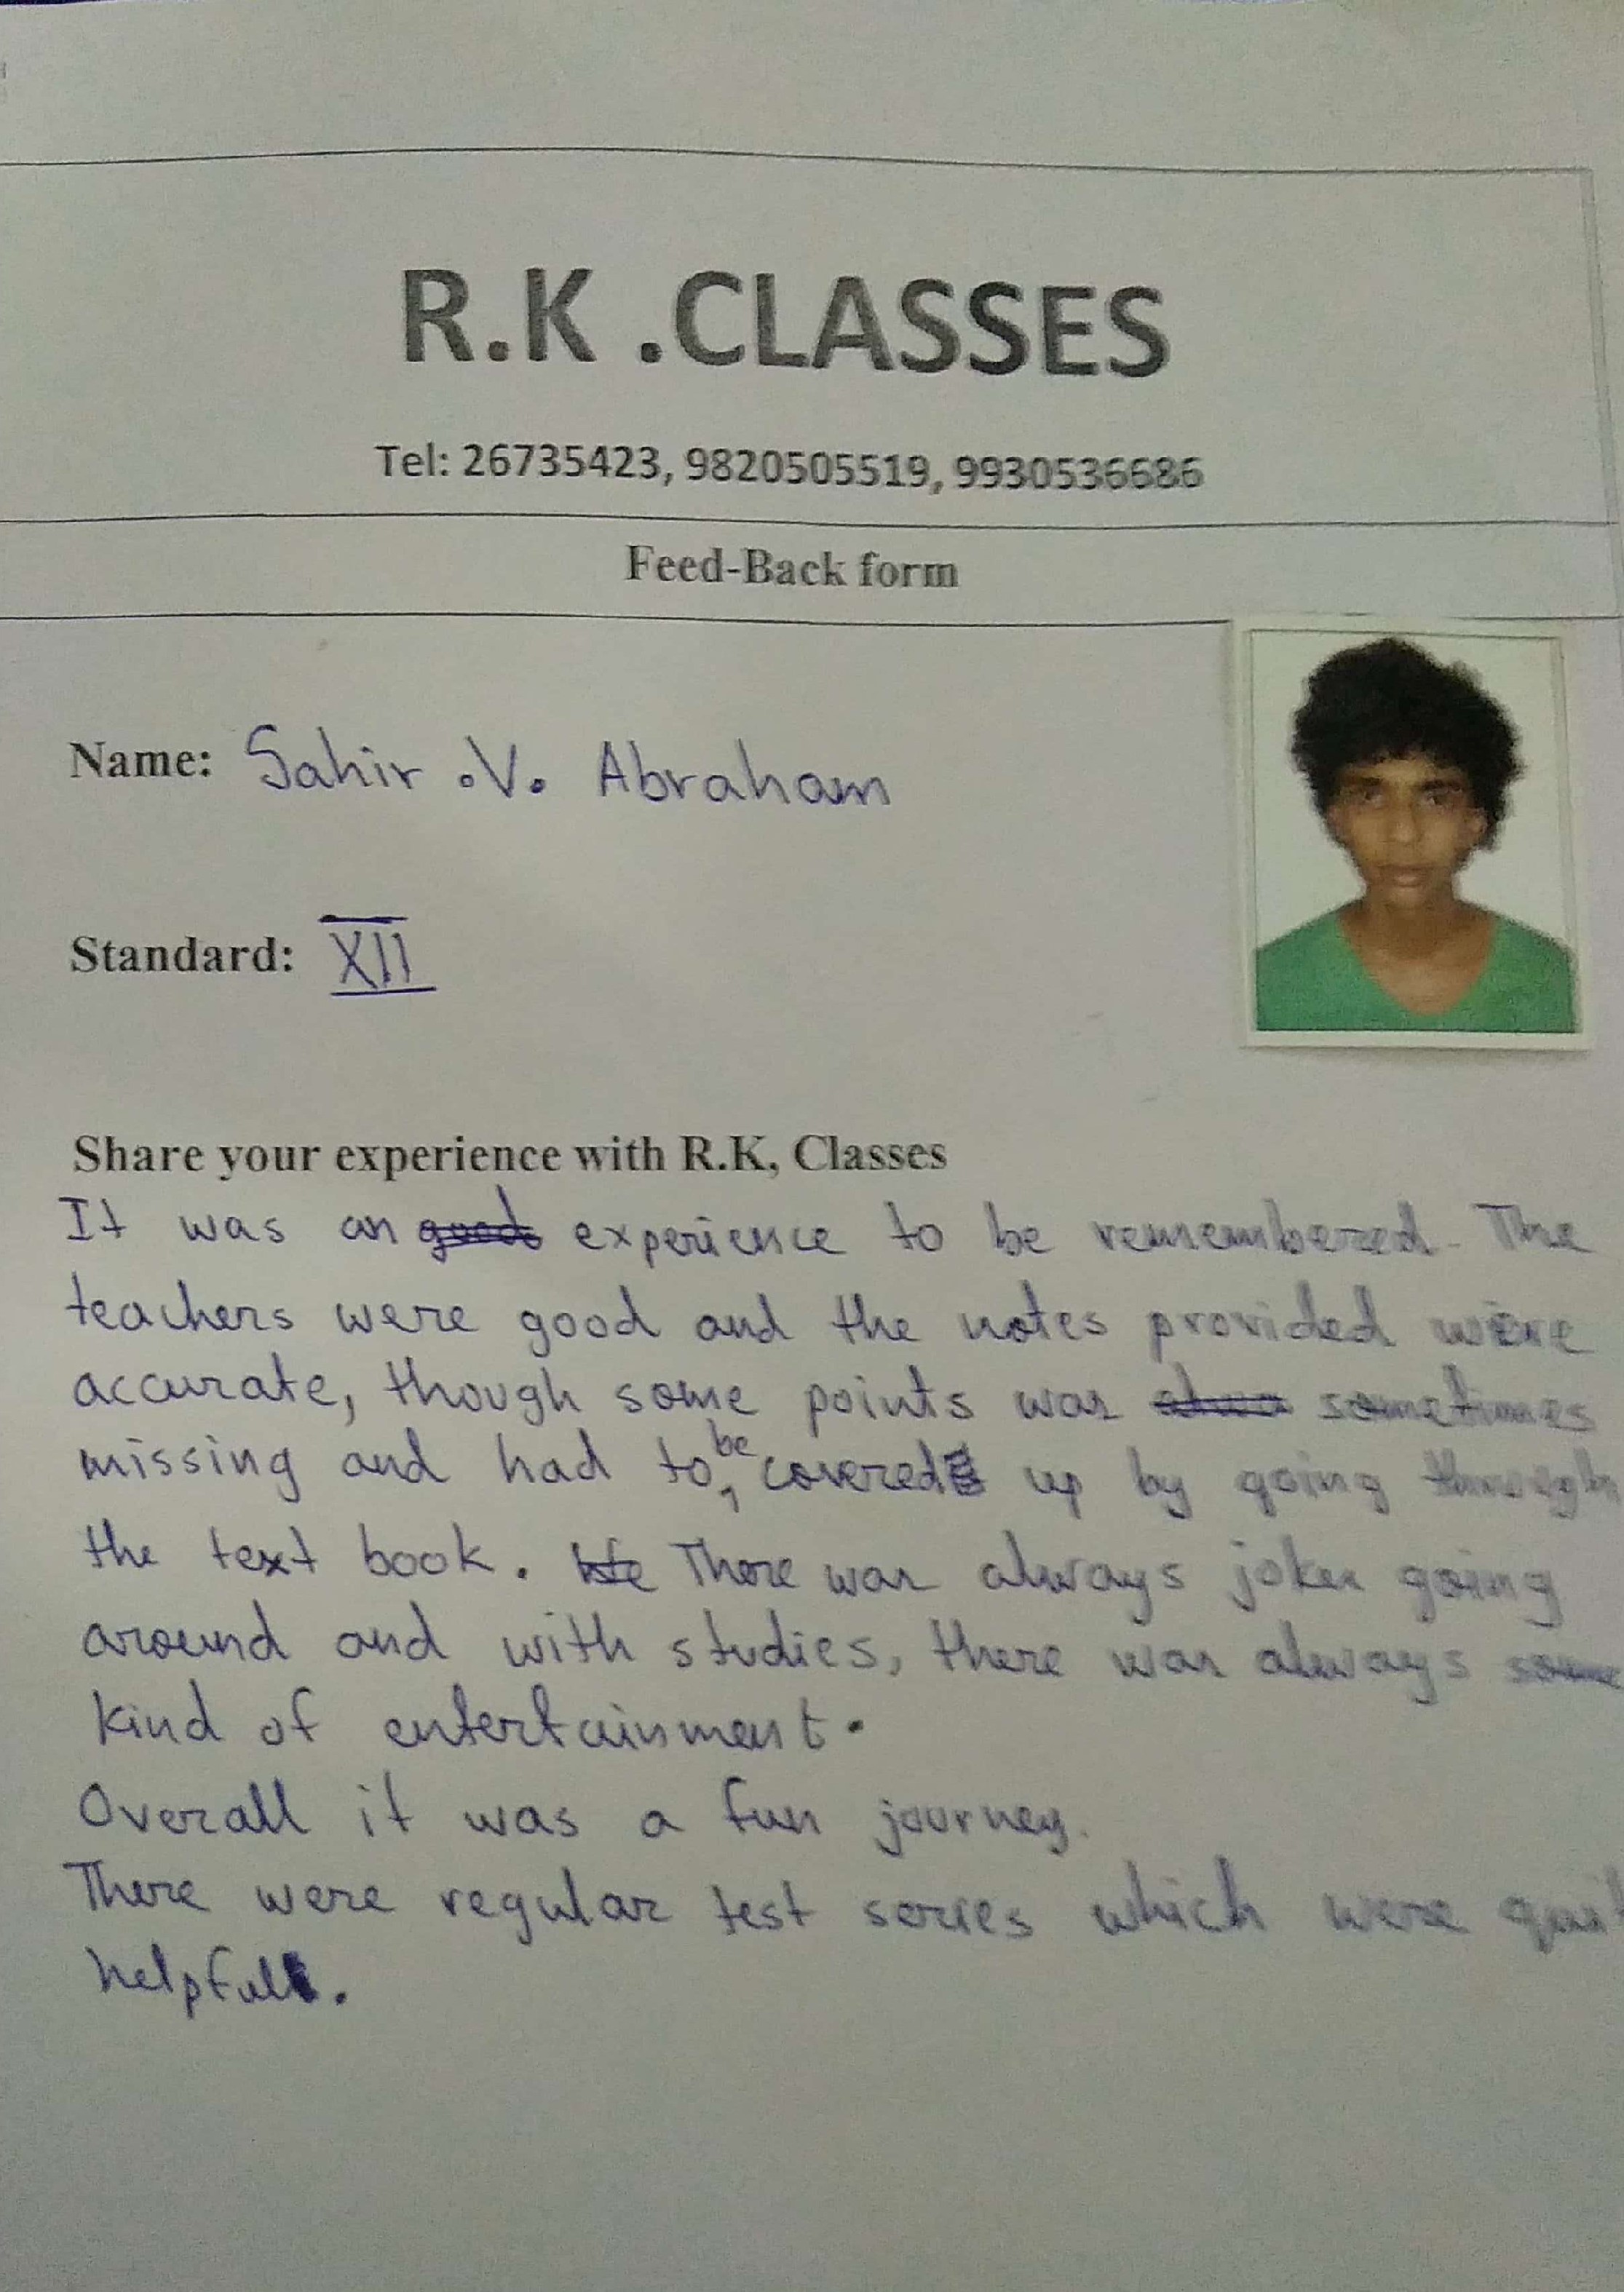 R.K .CLASSES
Tel: 26735423, 9820505519, 9930536686
Feed-Back form
Name: Sahir .V. Abraham
Standard: XII
Share your experience with R.K, Classes
It was an good experience to be remembered. The
teachers were good and the notes provided were
accurate, though some points was sometimes
missing and had to be covered up by going through
the text book. There was always jokes going
around and with studies, there was always some
kind of entertainment.
Overall it was a fun journey.
There were regular test series which were quit
helpful.